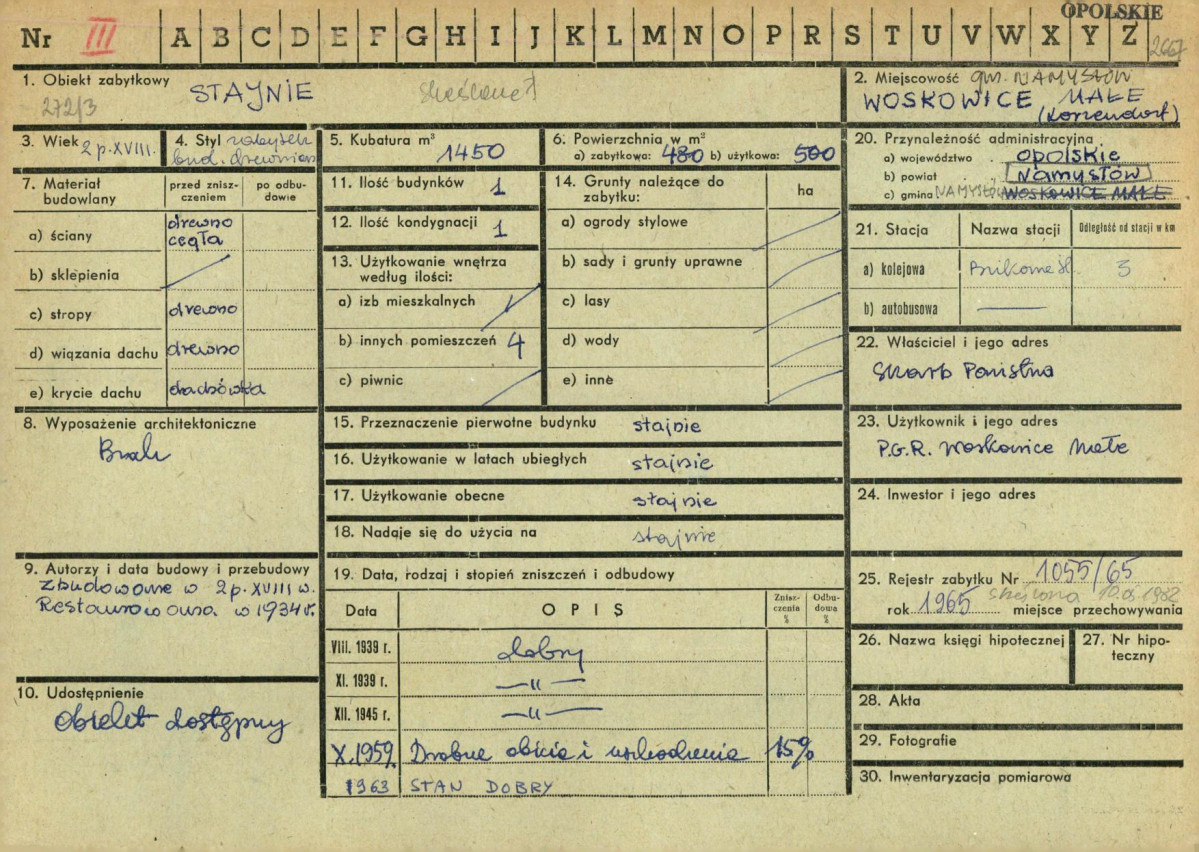 OPOLSKIE
Nr III A B C D E F G H I J K L M N O P R S T U V W X Y Z 2667
1. Obiekt zabytkowy STAJNIE
272/3
2. Miejscowość gm. NAMYSŁÓW
WOSKOWICE MAŁE
3. Wiek 2 p. XVIII.
4. Styl zabytek
bud. drewnian
5. Kubatura m³ 1450
6. Powierzchnia w m²
a) zabytkowa: 480 b) użytkowa: 500
20. Przynależność administracyjna
a) województwo opolskie
b) powiat Namysłów
c) gmina NAMYSŁÓW WOSKOWICE MAŁE
7. Materiał budowlany
przed znisz-
czeniem
po odbu-
dowie
a) ściany drewno
cegła
b) sklepienia
c) stropy drewno
d) wiązania dachu drewno
e) krycie dachu dachówka
11. Ilość budynków 1
12. Ilość kondygnacji 1
13. Użytkowanie wnętrza
według ilości:
a) izb mieszkalnych
b) innych pomieszczeń 4
c) piwnic
14. Grunty należące do
zabytku:
ha
a) ogrody stylowe
b) sady i grunty uprawne
c) lasy
d) wody
e) inne
21. Stacja Nazwa stacji Odległość od stacji w km
a) kolejowa 3
b) autobusowa
22. Właściciel i jego adres
Skarb Państwa
8. Wyposażenie architektoniczne
Brak
15. Przeznaczenie pierwotne budynku stajnie
16. Użytkowanie w latach ubiegłych stajnie
17. Użytkowanie obecne stajnie
18. Nadaje się do użycia na stajnie
23. Użytkownik i jego adres
P.G.R. Woskowice Małe
24. Inwestor i jego adres
9. Autorzy i data budowy i przebudowy
Zbudowane w 2 p. XVIII w.
Restaurowana w 1934 r.
10. Udostępnienie
Obiekt dostępny
19. Data, rodzaj i stopień zniszczeń i odbudowy
Data OPIS Znisz-
czenia
% Odbu-
dowa
%
VIII. 1939 r. dobry
XI. 1939 r. —"—
XII. 1945 r. —"—
X. 1959. Drobne obicia i uszkodzenia 15%
1963 STAN DOBRY
25. Rejestr zabytku Nr 1055/65
rok 1965 miejsce przechowywania
26. Nazwa księgi hipotecznej
27. Nr hipo-
teczny
28. Akta
29. Fotografie
30. Inwentaryzacja pomiarowa